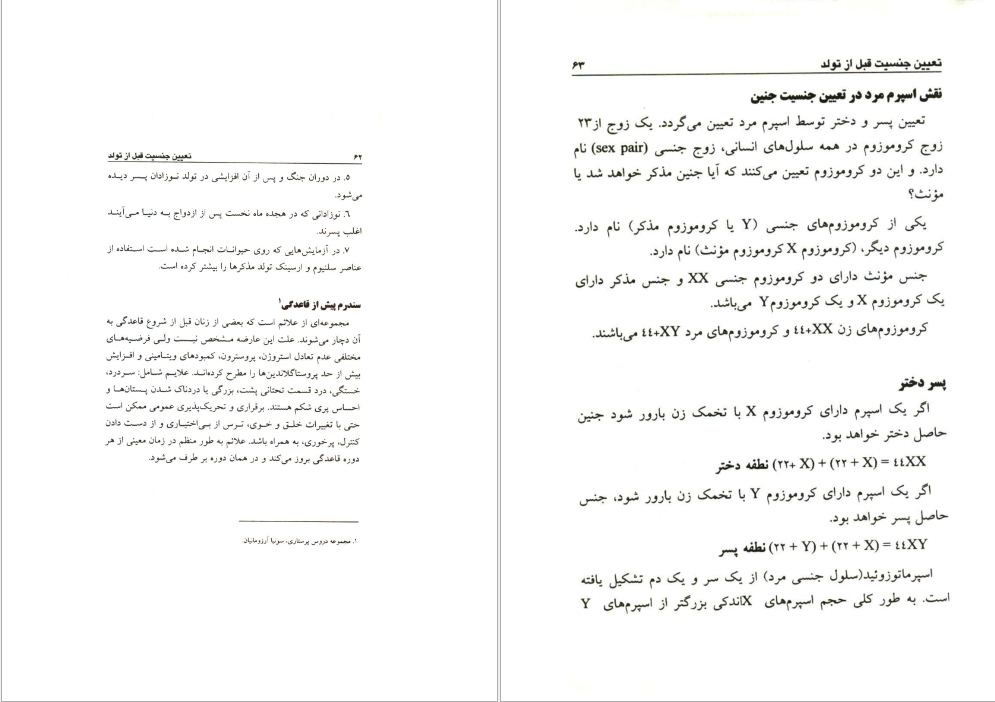 ۶۲ تعیین جنسیت قبل از تولد
۵. در دوران جنگ و پس از آن افزایشی در تولد نوزادان پسر دیده
می‌شود.
۶. نوزادانی که در هجده ماه نخست پس از ازدواج به دنیا می‌آیند
اغلب پسرند.
۷. در آزمایش‌هایی که روی حیوانات انجام شده است استفاده از
عناصر سلنیوم و ارسینک تولد مذکرها را بیشتر کرده است.
سندرم پیش از قاعدگی۱
مجموعه‌ای از علائم است که بعضی از زنان قبل از شروع قاعدگی به
آن دچار می‌شوند. علت این عارضه مشخص نیست ولی فرضیه‌های
مختلفی عدم تعادل استروژن، پروسترون، کمبودهای ویتامینی و افزایش
بیش از حد پروستاگلاندین‌ها را مطرح کرده‌اند. علایم شامل: سردرد،
خستگی، درد قسمت تحتانی پشت، بزرگی یا دردناک شدن پستان‌ها و
احساس پری شکم هستند. برقراری و تحریک‌پذیری عمومی ممکن است
حتی با تغییرات خلق و خوی، ترس از بی‌اختیاری و از دست دادن
کنترل، پرخوری، به همراه باشد. علائم به طور منظم در زمان معینی از هر
دوره قاعدگی بروز می‌کند و در همان دوره بر طرف می‌شود.
۱. مجموعه دروس پرستاری، سونیا آرزومانیان.
تعیین جنسیت قبل از تولد ۶۳
نقش اسپرم مرد در تعیین جنسیت جنین
تعیین پسر و دختر توسط اسپرم مرد تعیین می‌گردد. یک زوج از۲۳
زوج کروموزوم در همه سلول‌های انسانی، زوج جنسی (sex pair) نام
دارد. و این دو کروموزوم تعیین می‌کنند که آیا جنین مذکر خواهد شد یا
مؤنث؟
یکی از کروموزوم‌های جنسی (Y یا کروموزوم مذکر) نام دارد.
کروموزوم دیگر، (کروموزوم X کروموزوم مؤنث) نام دارد.
جنس مؤنث دارای دو کروموزوم جنسی XX و جنس مذکر دارای
یک کروموزوم X و یک کروموزوم Y می‌باشد.
کروموزوم‌های زن ٤٤+XX و کروموزوم‌های مرد ٤٤+XY می‌باشند.
پسر دختر
اگر یک اسپرم دارای کروموزوم X با تخمک زن بارور شود جنین
حاصل دختر خواهد بود.
٤٤XX = (۲۲ + X) + (۲۲+ X) نطفه دختر
اگر یک اسپرم دارای کروموزوم Y با تخمک زن بارور شود، جنس
حاصل پسر خواهد بود.
٤٤XY = (۲۲ + X) + (۲۲ + Y) نطفه پسر
اسپرماتوزوئید(سلول جنسی مرد) از یک سر و یک دم تشکیل یافته
است. به طور کلی حجم اسپرم‌های X اندکی بزرگتر از اسپرم‌های Y